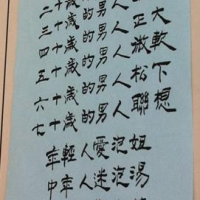 二十歲的男人
三十歲的男人
四十歲的男人正大
五十歲的男人微軟
六十歲的男人松下
七十歲的男人聯想
年輕人愛泡妞
中年人迷泡湯